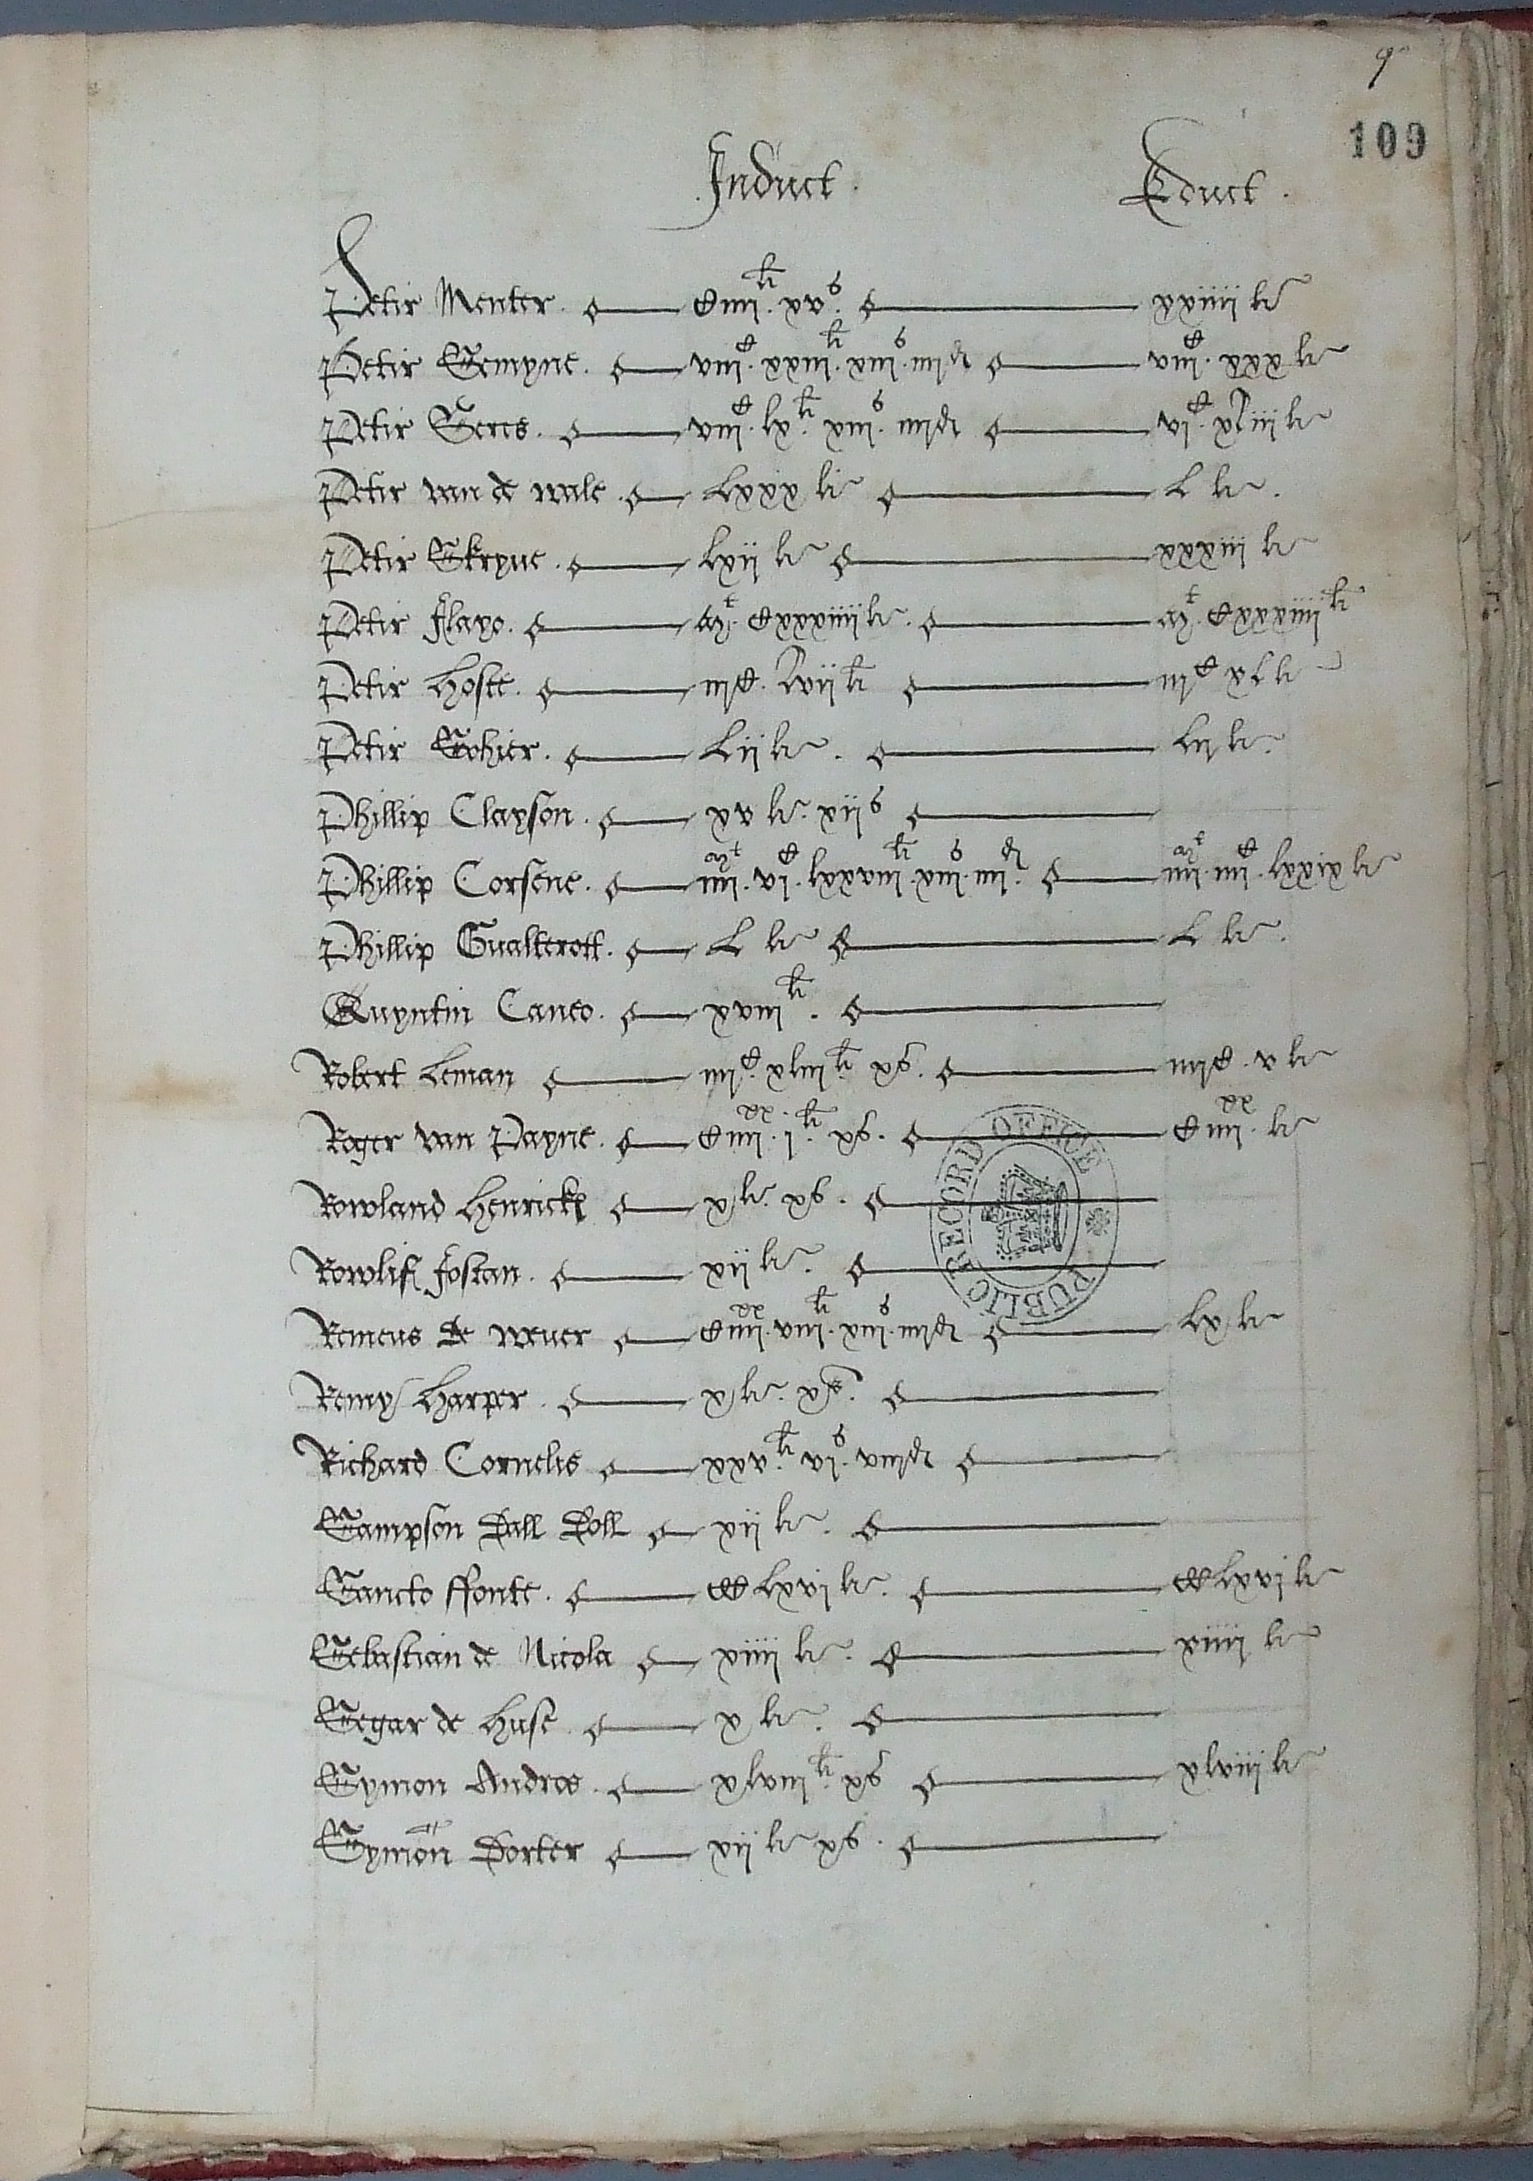 9
109
Induct. Educt.
Petir Menter. Ciiii li. xv s. xxiiii li
Petir Gemyne. viii C. xxiii li. xiii s. iiij d viii C. xxx li
Petir Seres. viii C. lx li. xiii s. iiij d vi C. xliii li
Petir van de wale. Lxxx li L li.
Petir Skryne. lxii li xxxiii li
Petir Flayo. Mt. Cxxxiiii li. Mt. Cxxxiiii li
Petir Hoste. iij C. Lvii li iij C xl li
Petir Gohier. Lii li. Lii li.
Phillip Clayson. xv li. xii s
Phillip Corsene. iiii Mt. vi C. lxxviii li. xiii s. iiii d. iiii Mt. iiii C. lxxix li
Phillip Gualterott. L li L li.
Quyntin Caneo. xviii li.
Robert Leman iiij C. xliii li. x s. iiij C. v li
Roger van Payne. C iiii xx. i li. x s. C iiii xx. li
PUBLIC RECORD OFFICE
Rowland Henrick x li. x s.
Rowlif Jostan. xii li.
Remeus de wever C iiii xx. viii li. xiii s. iiij d lx li
Remy Harper. x li. x s.
Richard Cornelis xxv li. vi s. viij d
Sampson Dall Doll xii li.
Sancto ffonte. CC Lxvi li. CC Lxvi li
Sebastian de Nicola xiiii li. xiiii li
Segar de Huse. x li.
Symon Andres. xlviii li. x s xlviii li
Symon Dorter xii li x s.